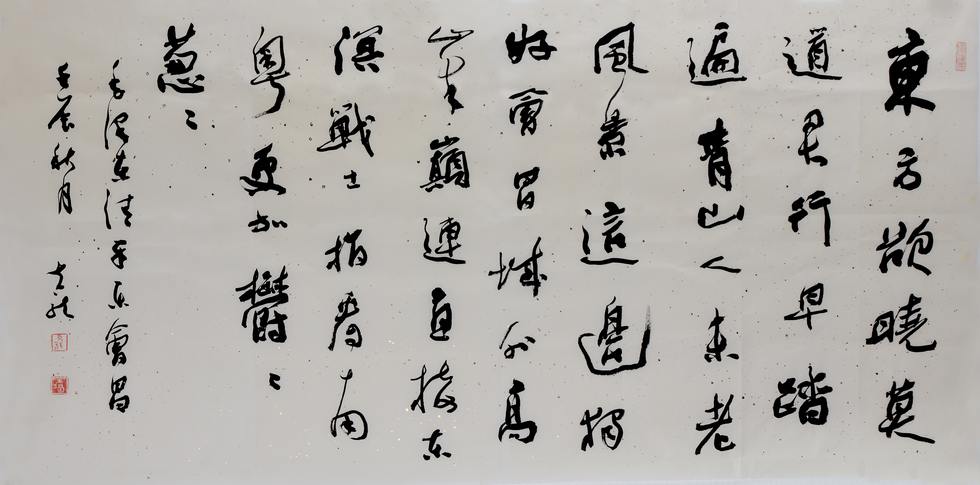 東方欲曉莫
道君行早踏
遍青山人未老
風景這邊獨
好會昌城外高
峯巔連直接东
溟戰士指看南
粵更加鬱〻
葱〻
毛澤东清平乐會昌
壬辰秋月